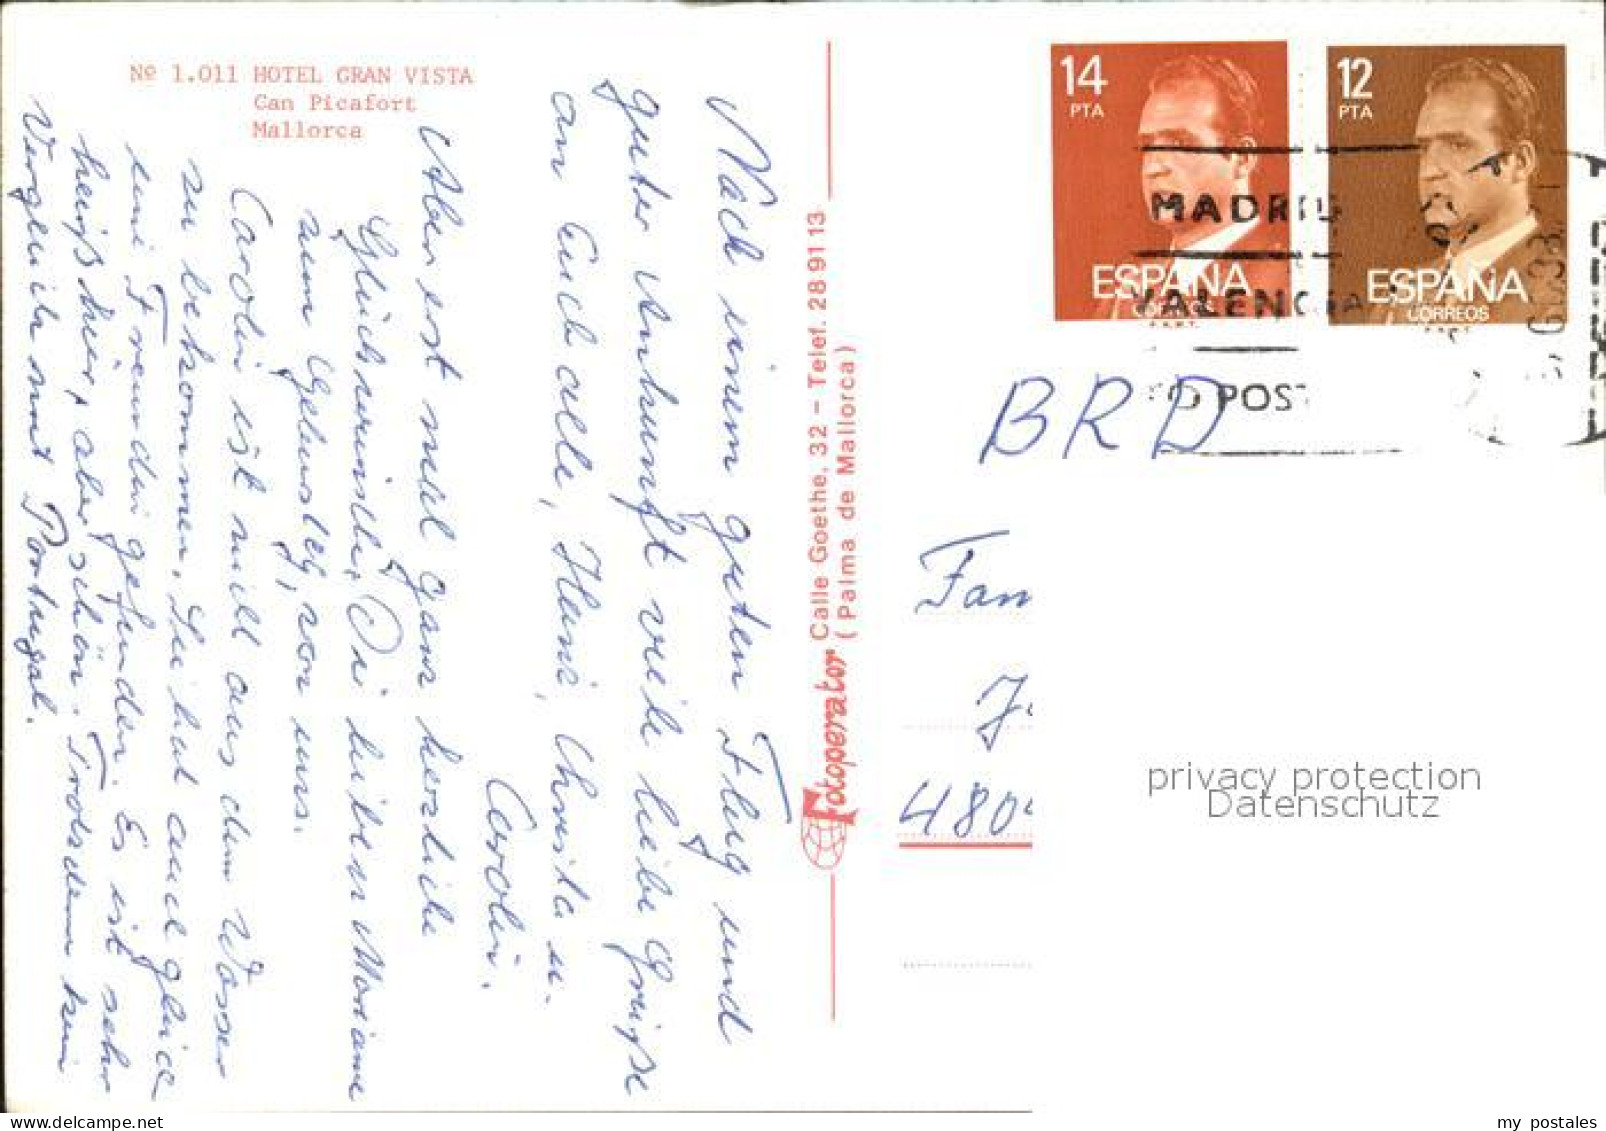 Nº 1.011 HOTEL GRAN VISTA
Can Picafort
Mallorca
Nach einem guten Flug und
guter Ankunft viele liebe Grüße
an Euch alle, Heini, Christa u.
Carolin.
Aber erst mal ganz herzliche
Glückwünsche, Dir lieben Mariane
zum Geburtstg, von uns.
Carolin ist nicht aus dem Wasser
zu bekommen. Sie hat auch gleich
eine Freundin gefunden. Es ist sehr
heiß hier, aber schön. Trotzdem kein
Vergleich mit Portugal.
Fotoperator
Calle Goethe, 32 - Telef. 28 91 13
(Palma de Mallorca)
14
PTA
ESPAÑA
CORREOS
12
PTA
ESPAÑA
CORREOS
MADRID
VALENCIA
BRD
Fam
privacy protection
Datenschutz
my postales